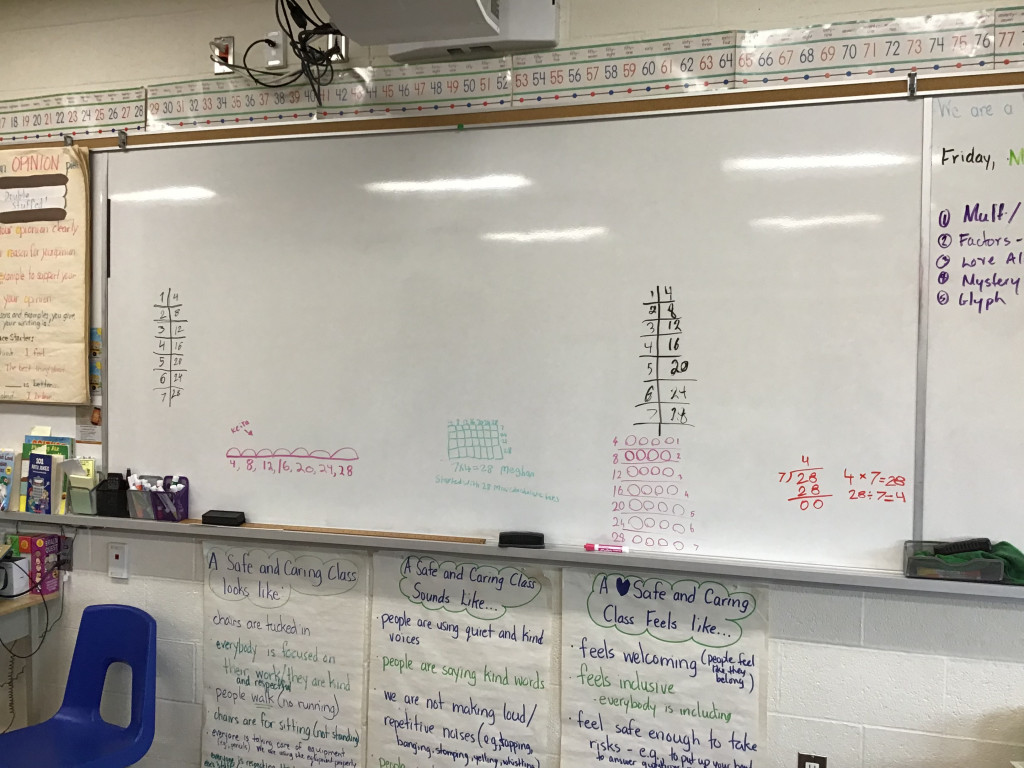 18 19 20 21 22 23 24 25 26 27 28 29 30 31 32 33 34 35 36 37 38 39 40 41 42 43 44 45 46 47 48 49 50 51 52 53 54 55 56 57 58 59 60 61 62 63 64 65 66 67 68 69 70 71 72 73 74 75 76 77
OPINION
opinion clearly
to support your
your opinion
and examples you give
your writing is!
The best
is better
We are a
Friday, M
① Mult/
② Factors -
③ Love Al
④ Mystery
⑤ Glyph
1 4
2 8
3 12
4 16
5 20
6 24
7 28
4, 8, 12, 16, 20, 24, 28
7x4=28 Meghan
Started with 28
1 4
2 8
3 12
4 16
5 20
6 24
7 28
4 1
8 2
12 3
16 4
20 5
24 6
28 7
4
7 28
28
00
4 x 7 = 28
28 ÷ 7 = 4
A Safe and Caring Class
looks like:
chairs are tucked in
everybody is focused on
their work/they are kind
and respectful
people walk (no running)
chairs are for sitting (not standing)
everyone is taking care of equipment
A Safe and Caring Class
Sounds Like...
• people are using quiet and kind
voices
• people are saying kind words
• we are not making loud/
repetitive noises (e.g. tapping,
banging, stomping, yelling, whistling)
A ♥ Safe and Caring
Class Feels like...
• feels welcoming (people feel
like they
belong)
• feels inclusive
- everybody is including
• feel safe enough to take
risks - e.g. to put up your hand
to answer